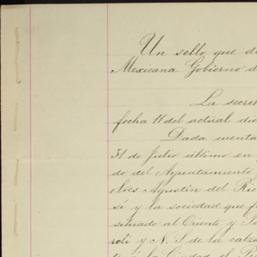 Un sello que di
Mexicana Gobierno d
La secre
fecha 11 del actual dic
Dada cuenta
31 de Julio último en
do del Ayuntamiento
Agustin del Rio
sí y la sociedad que f
situado al Oriente y
y N. S. de la calza
la Ciudad